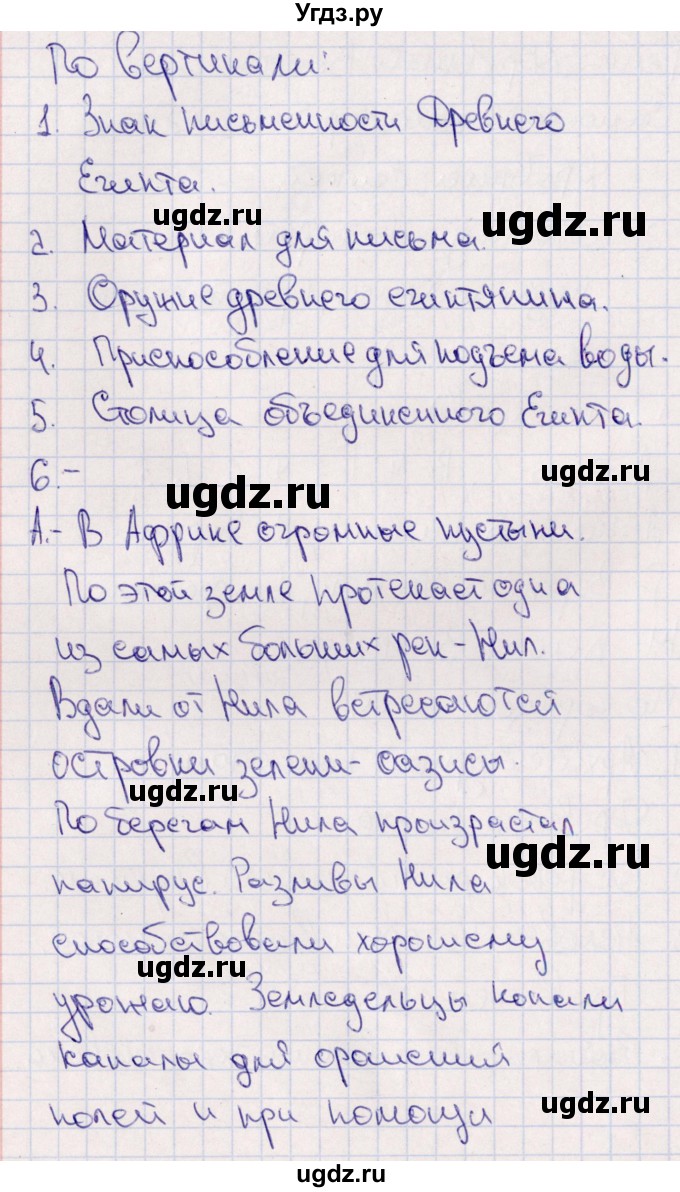 Угдз.ру
По вертикали:
1. Знак письменности Древнего
Египта.
ugdz.ru ugdz.ru
2. Материал для письма.
3. Оружие древнего египтянина.
4. Приспособление для подъема воды.
5. Столица объединенного Египта.
6.-
ugdz.ru ugdz.ru
А.- В Африке огромные пустыни.
По этой земле протекает одна
из самых больших рек - Нил.
Вдали от Нила встречаются
островки зелени - оазисы.
ugdz.ru
По берегам Нила произрастал
ugdz.ru
папирус. Разливы Нила
способствовали хорошему
ugdz.ru
урожаю. Земледельцы копали
каналы для орошения
ugdz.ru
полей и при помощи
ugdz.ru